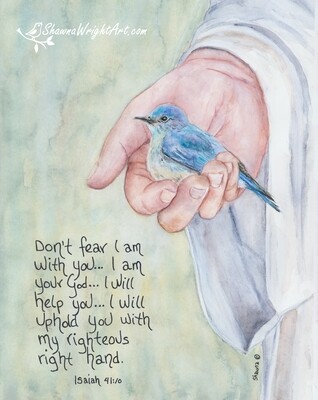 ShawnaWrightArt.com
Don't fear I am
with you... I am
your God... I will
help you... I will
uphold you with
my righteous
right hand.
Isaiah 41:10
Shawna ©